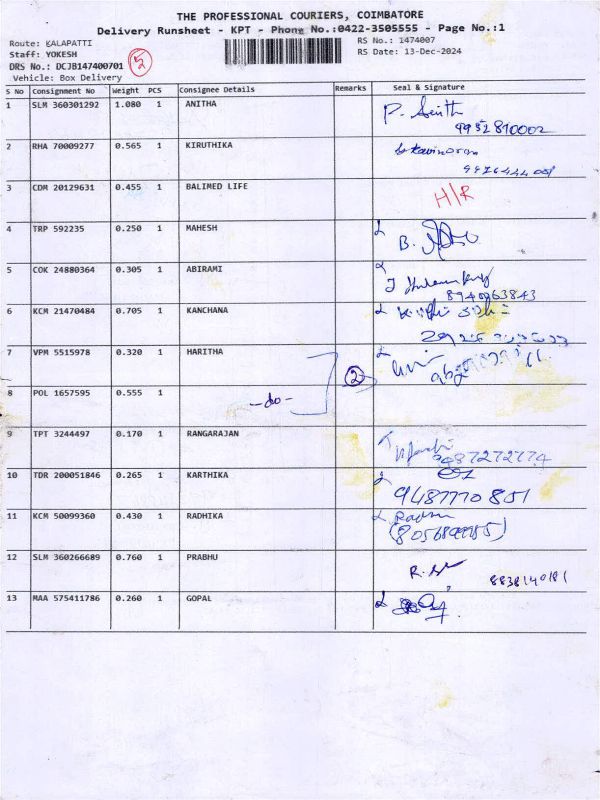 THE PROFESSIONAL COURIERS, COIMBATORE
Delivery Runsheet - KPT - Phone No.:0422-3505555 - Page No.:1
Route: KALAPATTI
RS No.: 1474007
Staff: YOKESH
RS Date: 13-Dec-2024
DRS No.: DCJB147400701
5
Vehicle: Box Delivery
S No Consignment No Weight PCS Consignee Details Remarks Seal & Signature
1 SLM 360301292 1.080 1 ANITHA
9952810002
2 RHA 70009277 0.565 1 KIRUTHIKA
3 CDM 20129631 0.455 1 BALIMED LIFE H/R
4 TRP 592235 0.250 1 MAHESH B.
5 COK 24880364 0.305 1 ABIRAMI
8940963843
6 KCM 21470484 0.705 1 KANCHANA
7 VPM 5515978 0.320 1 HARITHA
2
8 POL 1657595 0.555 1 -do-
9 TPT 3244497 0.170 1 RANGARAJAN
9487272774
10 TDR 200051846 0.265 1 KARTHIKA
9487770801
11 KCM 50099360 0.430 1 RADHIKA
12 SLM 360266689 0.760 1 PRABHU
8838140181
13 MAA 575411786 0.260 1 GOPAL